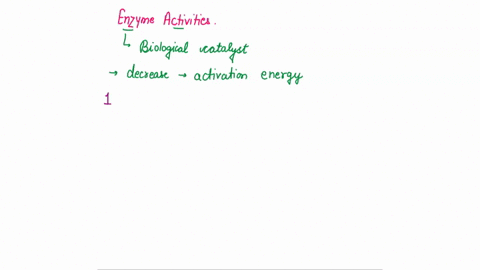 Enzyme Activities.
↳ Biological catalyst
→ decrease → activation energy
1